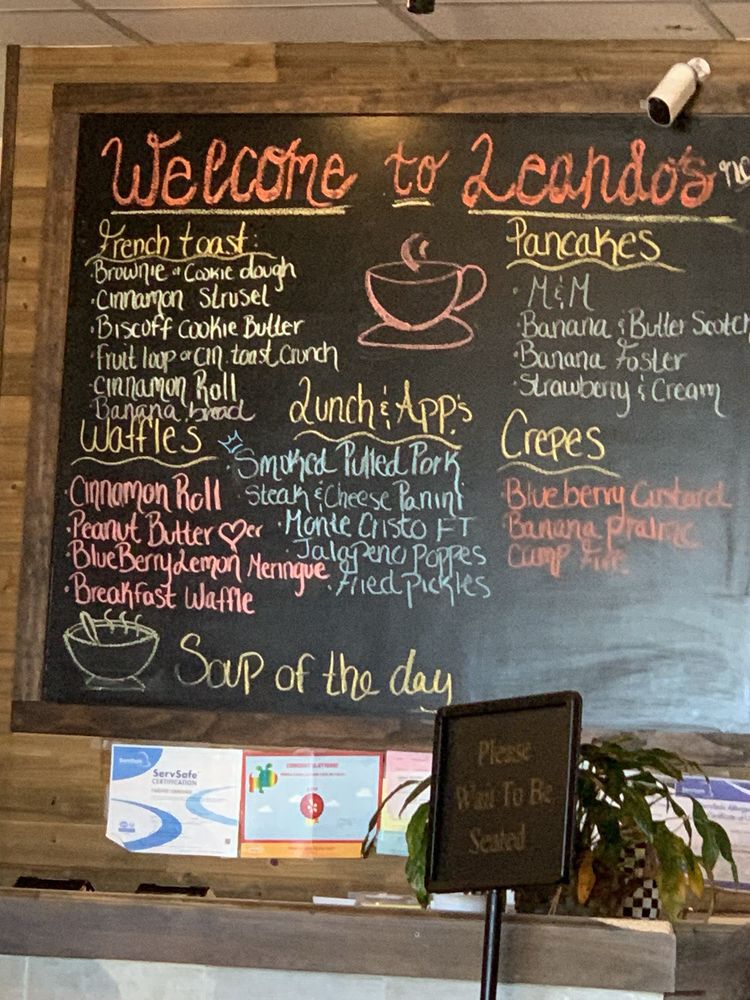 Welcome to Leando's
French toast:
Brownie or Cookie dough
· Cinnamon Strusel
· Biscoff Cookie Butter
· Fruit loop or Cin. toast Crunch
Cinnamon Roll
Banana bread
Waffles
· Cinnamon Roll
· Peanut Butter
· BlueBerry Lemon Meringue
· Breakfast Waffle
Lunch & App's
· Smoked Pulled Pork
Steak & Cheese Panini
· Monte Cristo FT
· Jalapeno Poppes
· Fried Pickles
Pancakes
· M&M
· Banana & Butter Scotch
· Banana Foster
· Strawberry & Cream
Crepes
· Blueberry Custard
Banana
Camp Fire
Soup of the day
ServSafe
CERTIFICATION
CONGRATULATIONS!
Please
Wait To Be
Seated